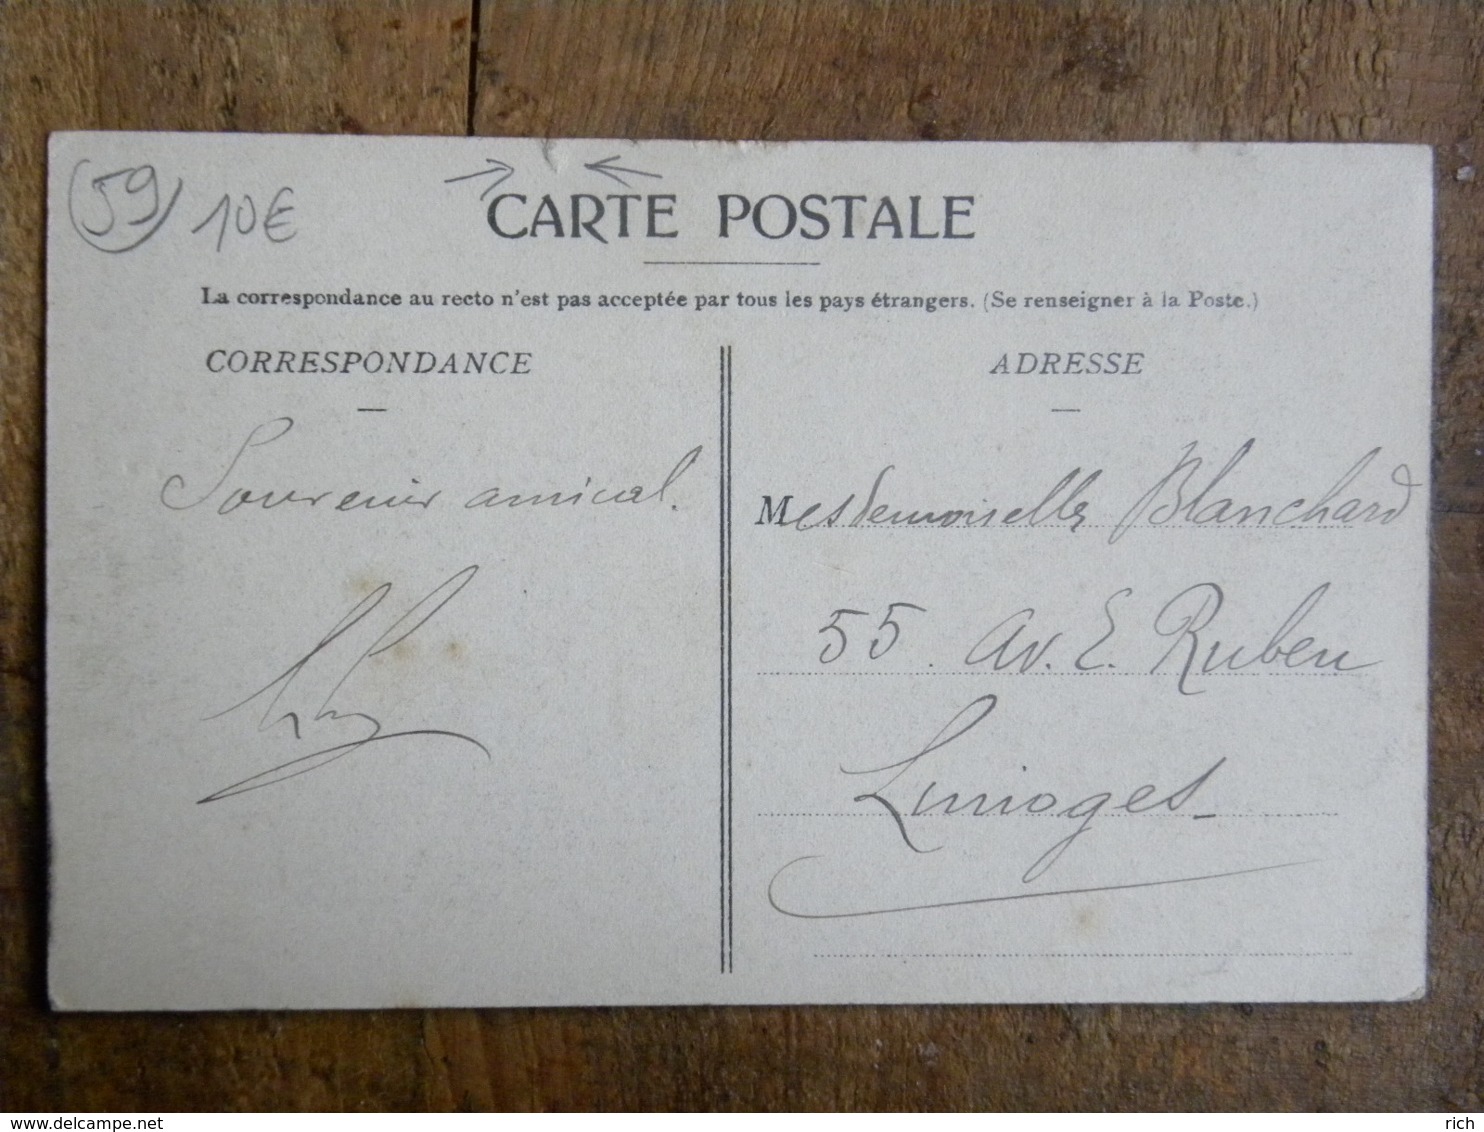 (59) 10€
CARTE POSTALE
La correspondance au recto n'est pas acceptée par tous les pays étrangers. (Se renseigner à la Poste.)
CORRESPONDANCE
Souvenir amical.
ADRESSE
Mesdemoiselles Blanchard
55. Av. E. Ruben
Limoges
delcampe.net
rich